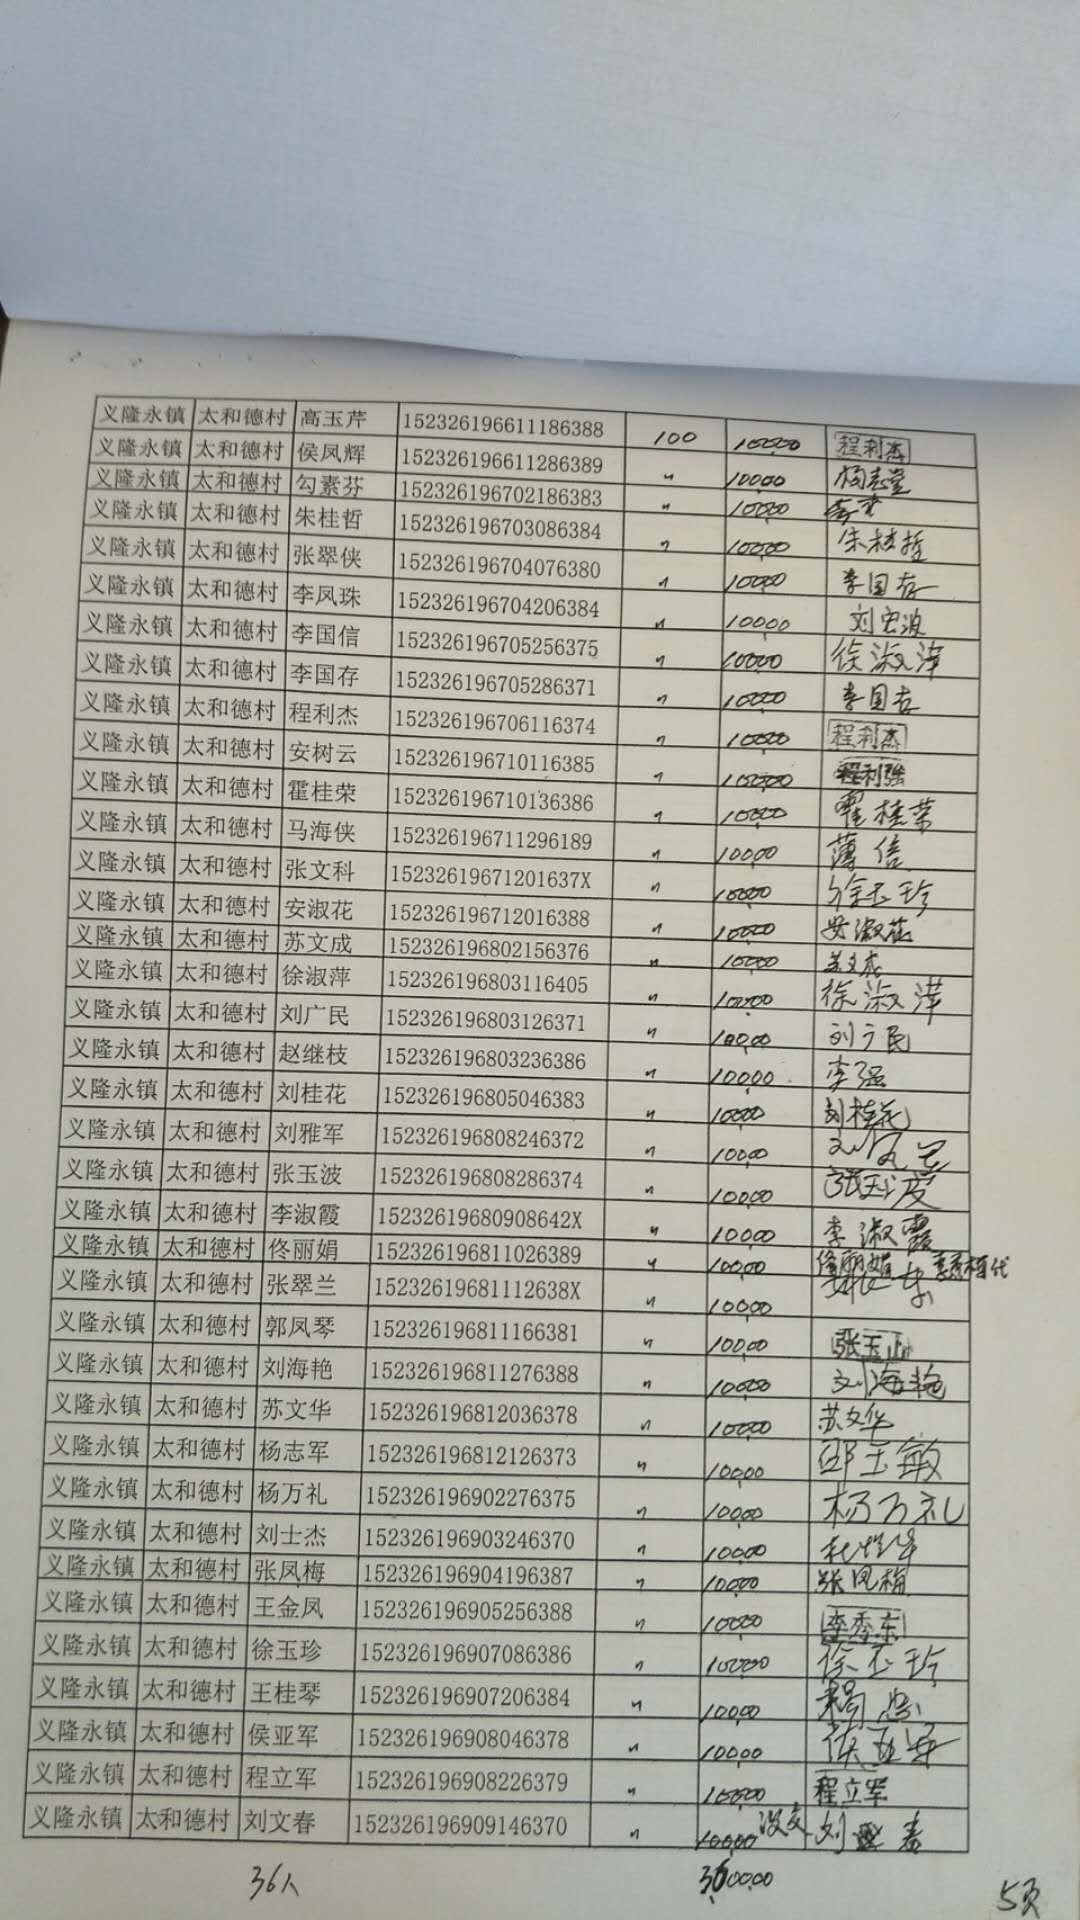 义隆永镇 太和德村 高玉芹 152326196611186388 100 100.00 程利杰
义隆永镇 太和德村 侯凤辉 152326196611286389 〃 100.00 杨志堂
义隆永镇 太和德村 勾素芬 152326196702186383 〃 100.00
义隆永镇 太和德村 朱桂哲 152326196703086384 〃 100.00 朱桂哲
义隆永镇 太和德村 张翠侠 152326196704076380 〃 100.00 李国存
义隆永镇 太和德村 李凤珠 152326196704206384 〃 100.00 刘宏波
义隆永镇 太和德村 李国信 152326196705256375 〃 100.00 徐淑萍
义隆永镇 太和德村 李国存 152326196705286371 〃 100.00 李国存
义隆永镇 太和德村 程利杰 152326196706116374 〃 100.00 程利杰
义隆永镇 太和德村 安树云 152326196710116385 〃 100.00 程利强
义隆永镇 太和德村 霍桂荣 152326196710136386 〃 100.00 霍桂荣
义隆永镇 太和德村 马海侠 152326196711296189 〃 100.00 薄信
义隆永镇 太和德村 张文科 15232619671201637X 〃 100.00 徐玉珍
义隆永镇 太和德村 安淑花 152326196712016388 〃 100.00 安淑花
义隆永镇 太和德村 苏文成 152326196802156376 〃 100.00
义隆永镇 太和德村 徐淑萍 152326196803116405 〃 100.00 徐淑萍
义隆永镇 太和德村 刘广民 152326196803126371 〃 100.00 刘广民
义隆永镇 太和德村 赵继枝 152326196803236386 〃 100.00 李强
义隆永镇 太和德村 刘桂花 152326196805046383 〃 100.00 刘桂花
义隆永镇 太和德村 刘雅军 152326196808246372 〃 100.00
义隆永镇 太和德村 张玉波 152326196808286374 〃 100.00 张玉波
义隆永镇 太和德村 李淑霞 15232619680908642X 〃 100.00 李淑霞
义隆永镇 太和德村 佟丽娟 152326196811026389 〃 100.00 佟丽娟
义隆永镇 太和德村 张翠兰 15232619681112638X 〃 100.00
义隆永镇 太和德村 郭凤琴 152326196811166381 〃 100.00 张玉山
义隆永镇 太和德村 刘海艳 152326196811276388 〃 100.00 刘海艳
义隆永镇 太和德村 苏文华 152326196812036378 〃 100.00 苏文华
义隆永镇 太和德村 杨志军 152326196812126373 〃 100.00 邵玉敏
义隆永镇 太和德村 杨万礼 152326196902276375 〃 100.00 杨万礼
义隆永镇 太和德村 刘士杰 152326196903246370 〃 100.00
义隆永镇 太和德村 张凤梅 152326196904196387 〃 100.00 张凤梅
义隆永镇 太和德村 王金凤 152326196905256388 〃 100.00 李秀东
义隆永镇 太和德村 徐玉珍 152326196907086386 〃 100.00 徐玉珍
义隆永镇 太和德村 王桂琴 152326196907206384 〃 100.00
义隆永镇 太和德村 侯亚军 152326196908046378 〃 100.00 侯亚军
义隆永镇 太和德村 程立军 152326196908226379 〃 100.00 程立军
义隆永镇 太和德村 刘文春 152326196909146370 〃 100.00 没交 刘文春
36人 3600.00 5页